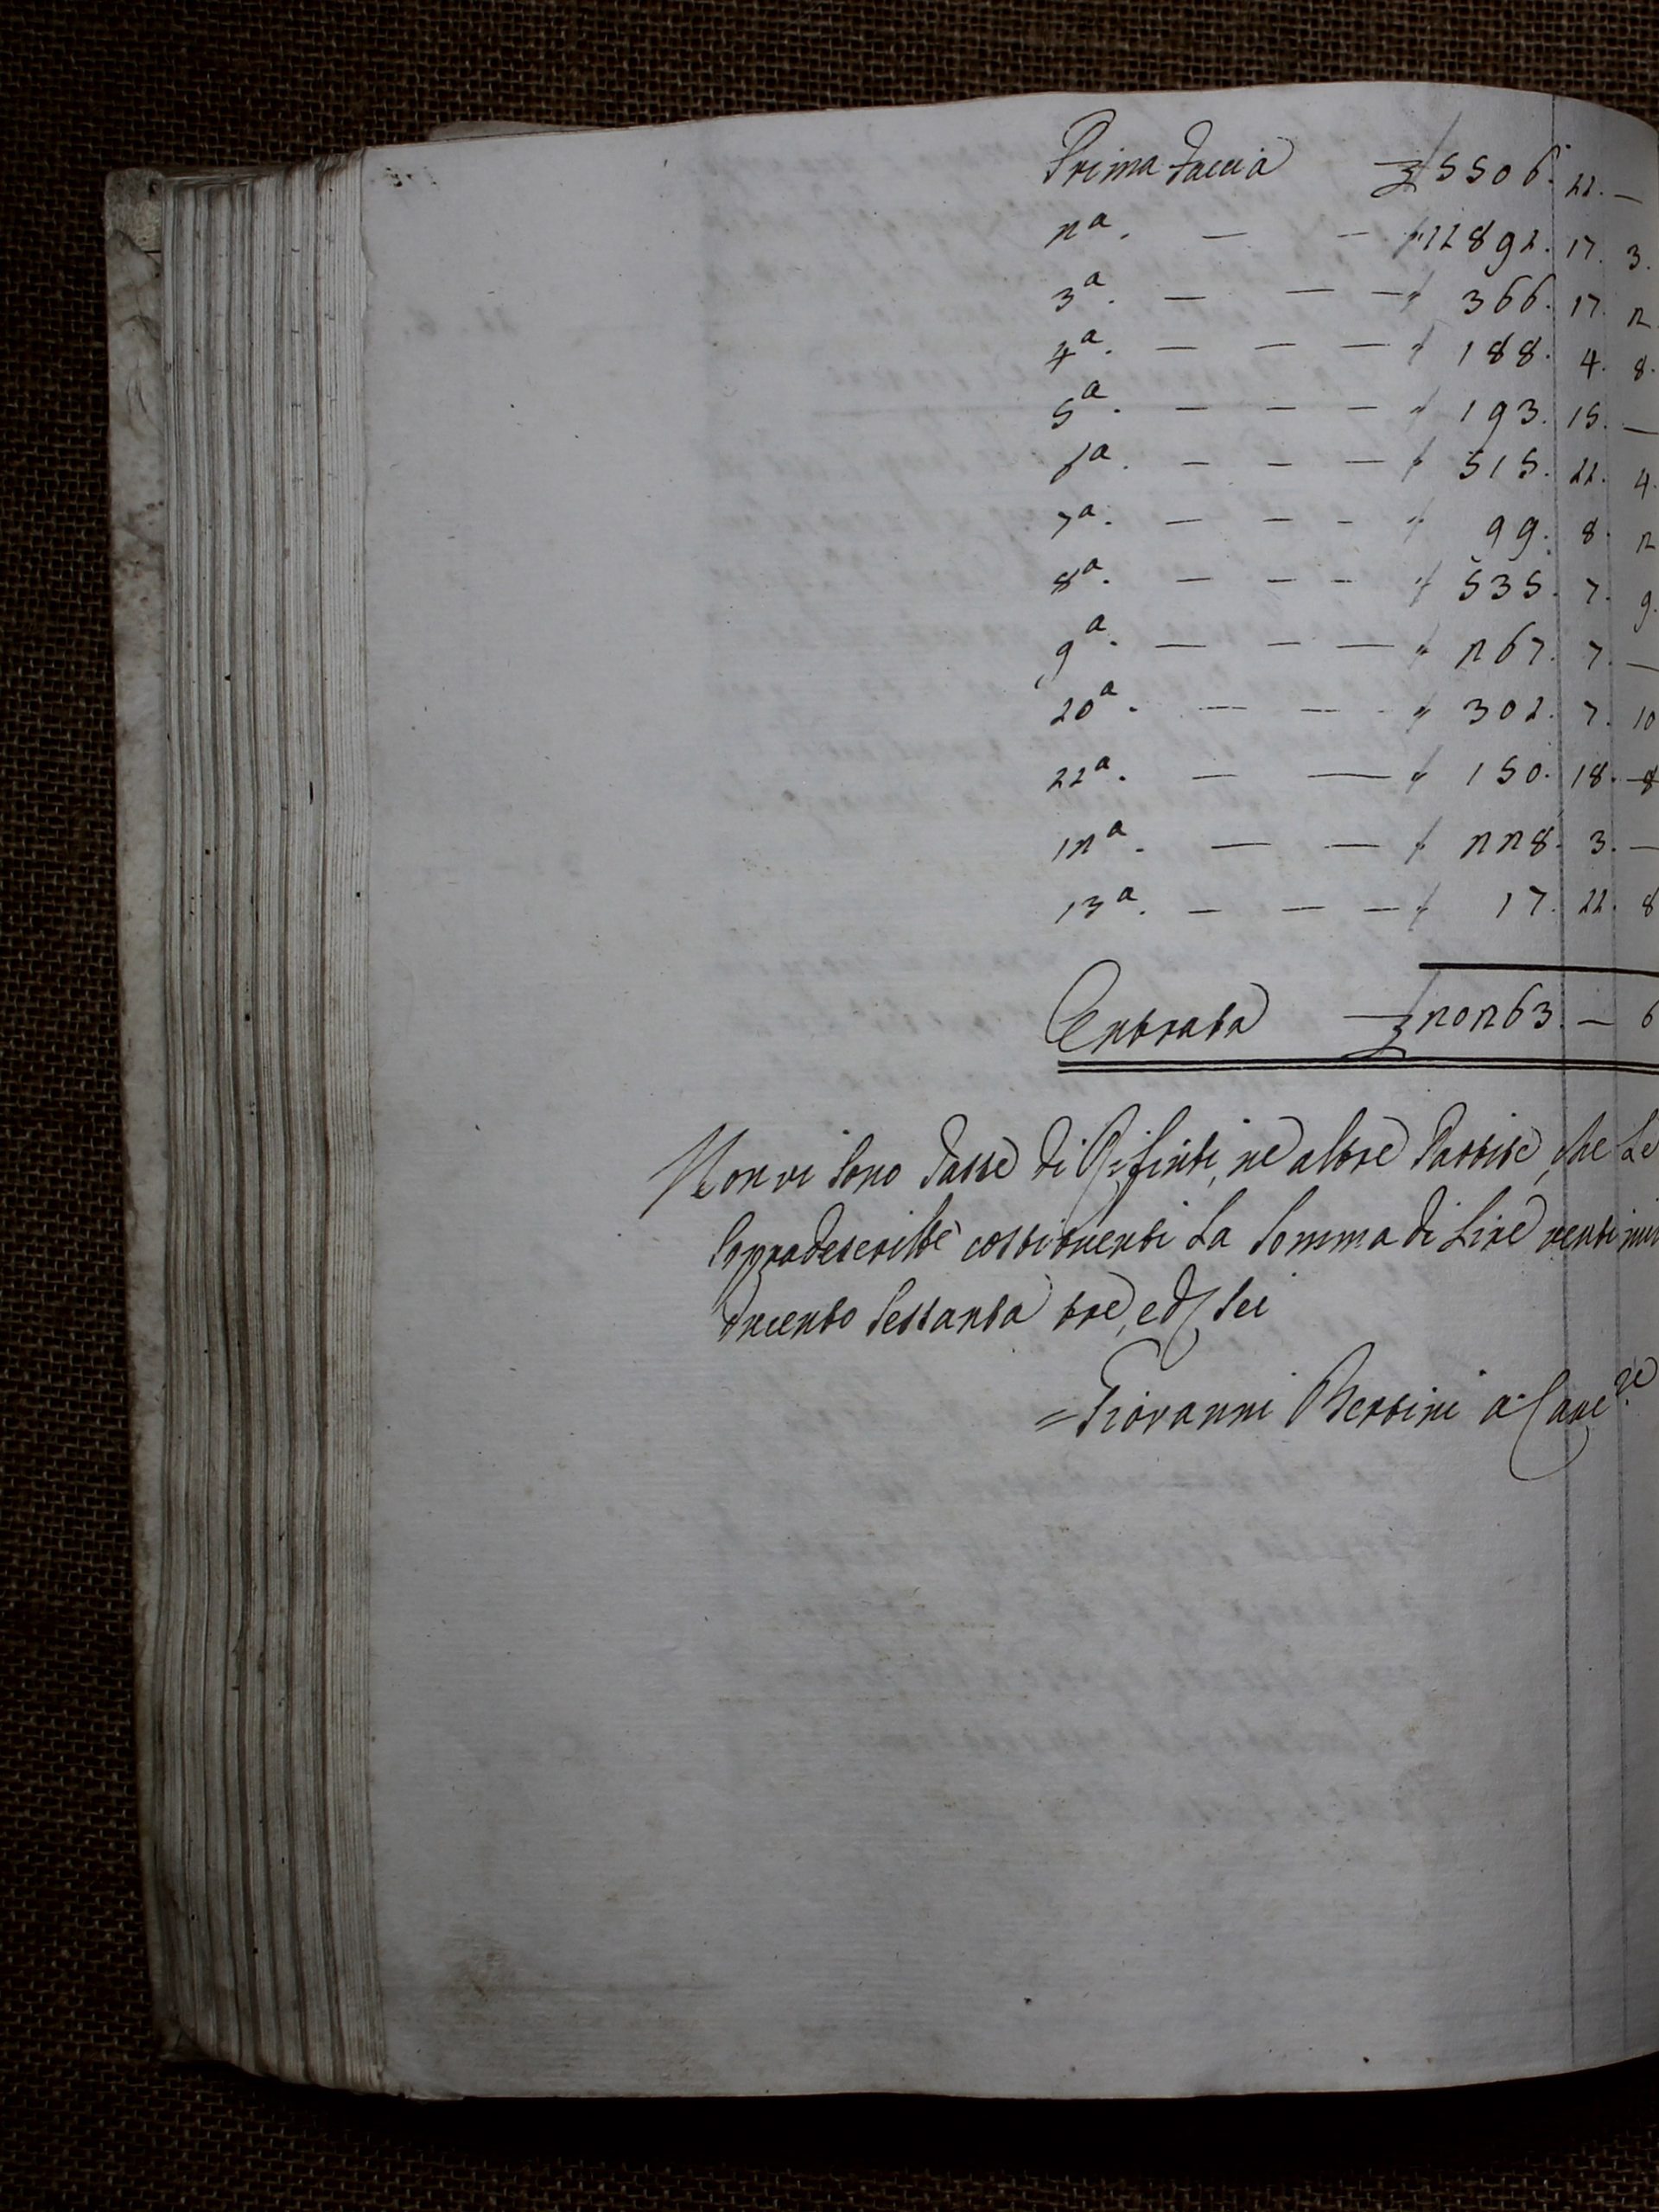 Prima Faccia £ 5506. 11. —
2a. — — " 11891. 17. 3.
3a. — — — " 366. 17. 2
4a. — — — " 188. 4. 8.
5a. — — — " 193. 15. —
6a. — — — " 515. 11. 4.
7a. — — — " 99. 8. 2
8a. — — — " 535. 7. 9.
9a. — — — " 267. 7. —
10a. — — — " 301. 7. 10
11a. — — " 150. 18. 8
12a. — — " 228. 3. —
13a. — — — " 17. 11. 8
Entrata £ 20263. — 6
Non vi sono Tasse di né altre Partite, che Le
sopradescritte costituenti La Somma di Lire venti mi
ducento Sessanta tre, e sei
= Giovanni Bertini Canc.re